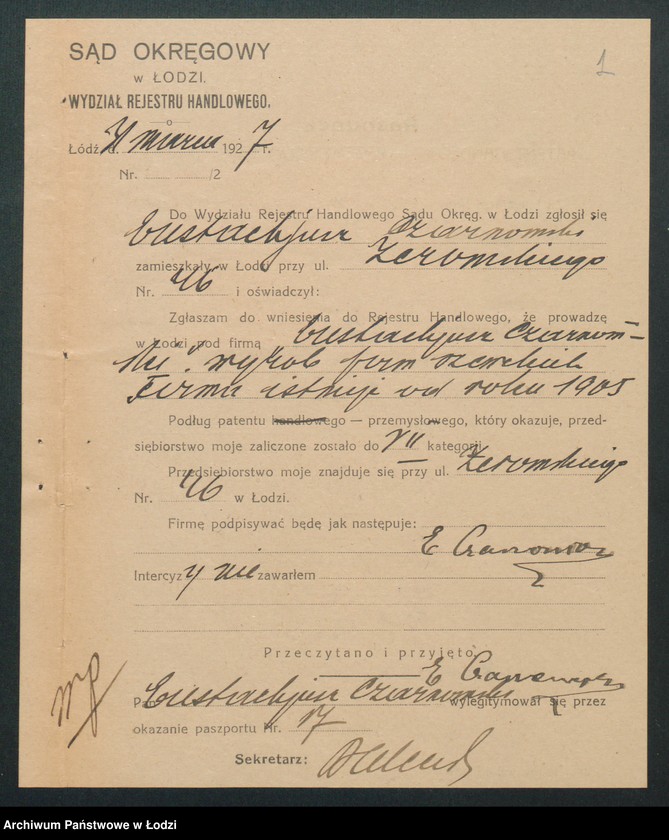 SĄD OKRĘGOWY
w ŁODZI.
WYDZIAŁ REJESTRU HANDLOWEGO.
1
Łódź, d. marca 1927 r.
Nr. /2
Do Wydziału Rejestru Handlowego Sądu Okręg. w Łodzi zgłosił się
Eustachjusz Czarnomski
zamieszkały w Łodzi przy ul. Żeromskiego
Nr. 46 i oświadczył:
Zgłaszam do wniesienia do Rejestru Handlowego, że prowadzę
w Łodzi pod firmą Eustachjusz Czarnom-
ski" wyrób form szewckich
Firma istnieje od roku 1905
Podług patentu handlowego — przemysłowego, który okazuje, przed-
siębiorstwo moje zaliczone zostało do VII kategorji
Przedsiębiorstwo moje znajduje się przy ul. Żeromskiego
Nr. 46 w Łodzi.
Firmę podpisywać będę jak następuje:
E Czarnomski
Intercyzy nie zawarłem
Przeczytano i przyjęto
E Czarnomski
Eustachjusz Czarnomski wylegitymował się przez
okazanie paszportu Nr. 17
Sekretarz:
Archiwum Państwowe w Łodzi